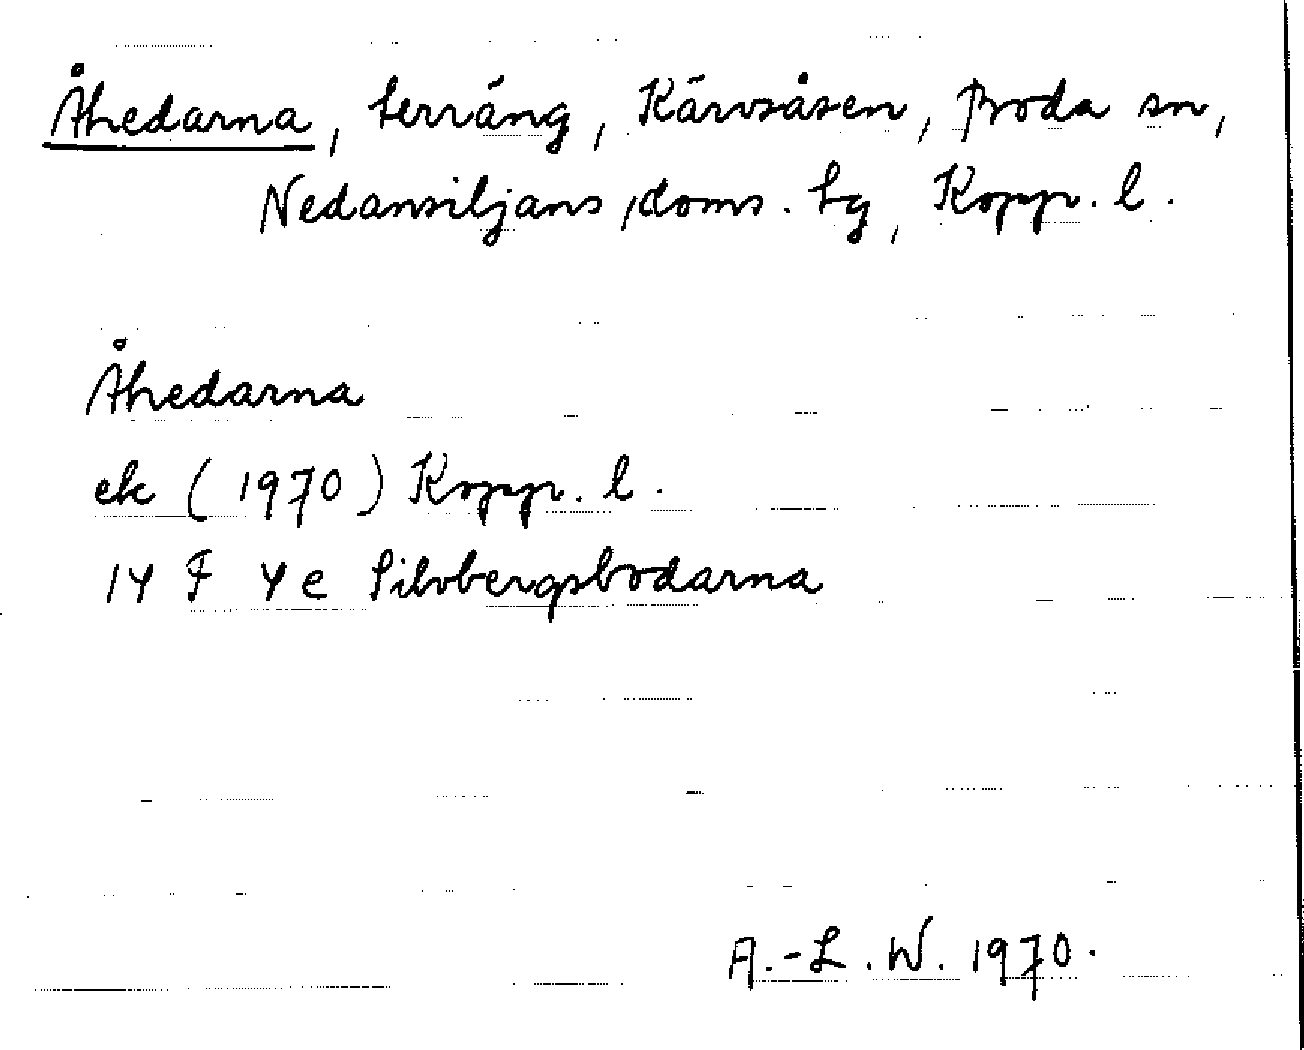 Åhedarna, terräng, Kärvsåsen, Boda sn,
Nedansiljans doms. tg, Kopp. l.
Åhedarna
ek (1970) Kopp. l.
14 F 4e Silvbergsbodarna
A.-L. W. 1970.